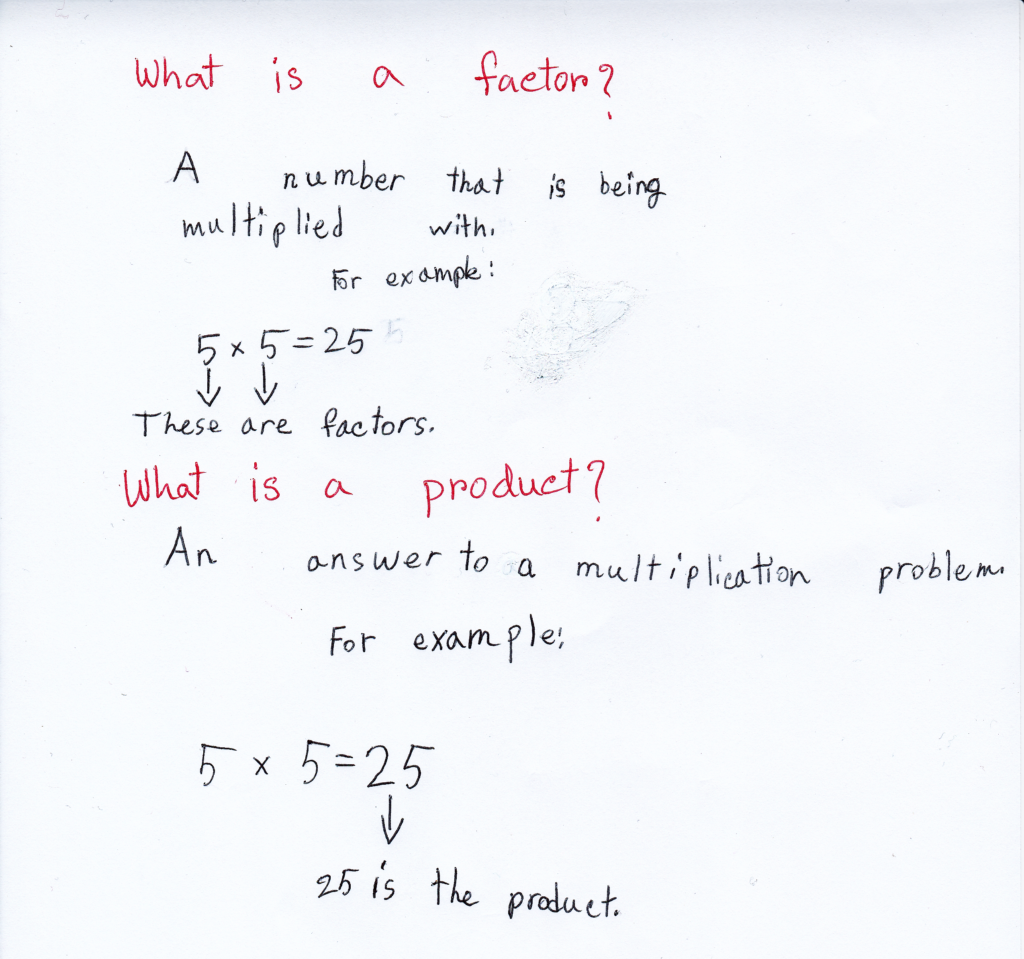 What is a factor?
A number that is being
multiplied with.
For example:
5 x 5 = 25
These are factors.
What is a product?
An answer to a multiplication problem.
For example:
5 x 5 = 25
25 is the product.